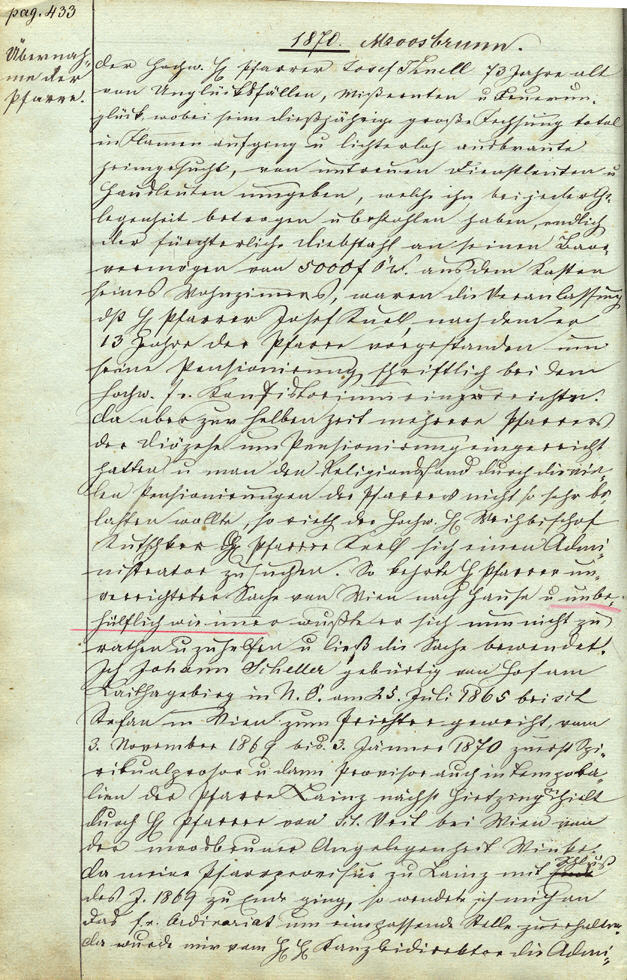 pag. 433
1870. Moosbrunn.
Übernah-
me der
Pfarre.
Der hochw. H. Pfarrer Josef Knell 73 Jahre alt
von Unglücksfällen, Mißernten u Feuerun-
glück, wobei seine dießjährige große Fechsung total
in Flamen aufging u lichterloh ausbrante
heimgesucht, von untreuen Dienstleuten u
Hausleuten umgeben, welche ihn bei jeder Ge-
legenheit betrogen u bestohlen haben, endlich
der fürchterliche Diebstahl an seinen Baar-
vermögen von 5000 f ö. W. aus dem Kasten
seines Wohnzimers, waren die Veranlassung
dß H. Pfarrer Josef Knell, nachdem er
13 Jahre der Pfarre vorgestanden um
seine Pensionirung schriftlich bei dem
hochw. f. e. Konsistorium einzureichen.
Da aber zur selben Zeit mehrere Pfarrers
der Diözese um Pensionirung eingereicht
hatten u man den Religionsfond durch die vie-
len Pensionirungen der Pfarrers nicht so sehr be
lasten wollte, so rieth der hochw. H. Weihbischof
Kutschker H. Pfarrer Knell sich einen Admi-
nistrator zu suchen. So kehrte H Pfarrer un-
verrichteter Sache von Wien nach Hause u unbe-
hülflich wie imer wußte er sich nun nicht zu
rathen u zu helfen u ließ die Sache bewendet.
Ich Johann Scheller gebürtig von Hof am
Laithagebirg in N. Ö. am 25. Juli 1865 bei sct
Stefan in Wien zum Priester geweiht vom
3. November 1869 bis 3. Jänner 1870 zuerst Spi-
ritualprosor u dann Provisor auch in Tempora-
lien der Pfarre Lainz nächst Hietzing erhielt
durch H Pfarrer von St. Veit bei Wien von
der moosbruner Angelegenheit Winke.
Da meine Pfarrprovisur zu Lainz mit Schluß
des J. 1869 zu Ende ging, so wendete ich mich an
das f. e. Ordinariat um eine passende Stelle zu erhalten
da wurde mir vom H. H. Kanzleidirektor die Admi-